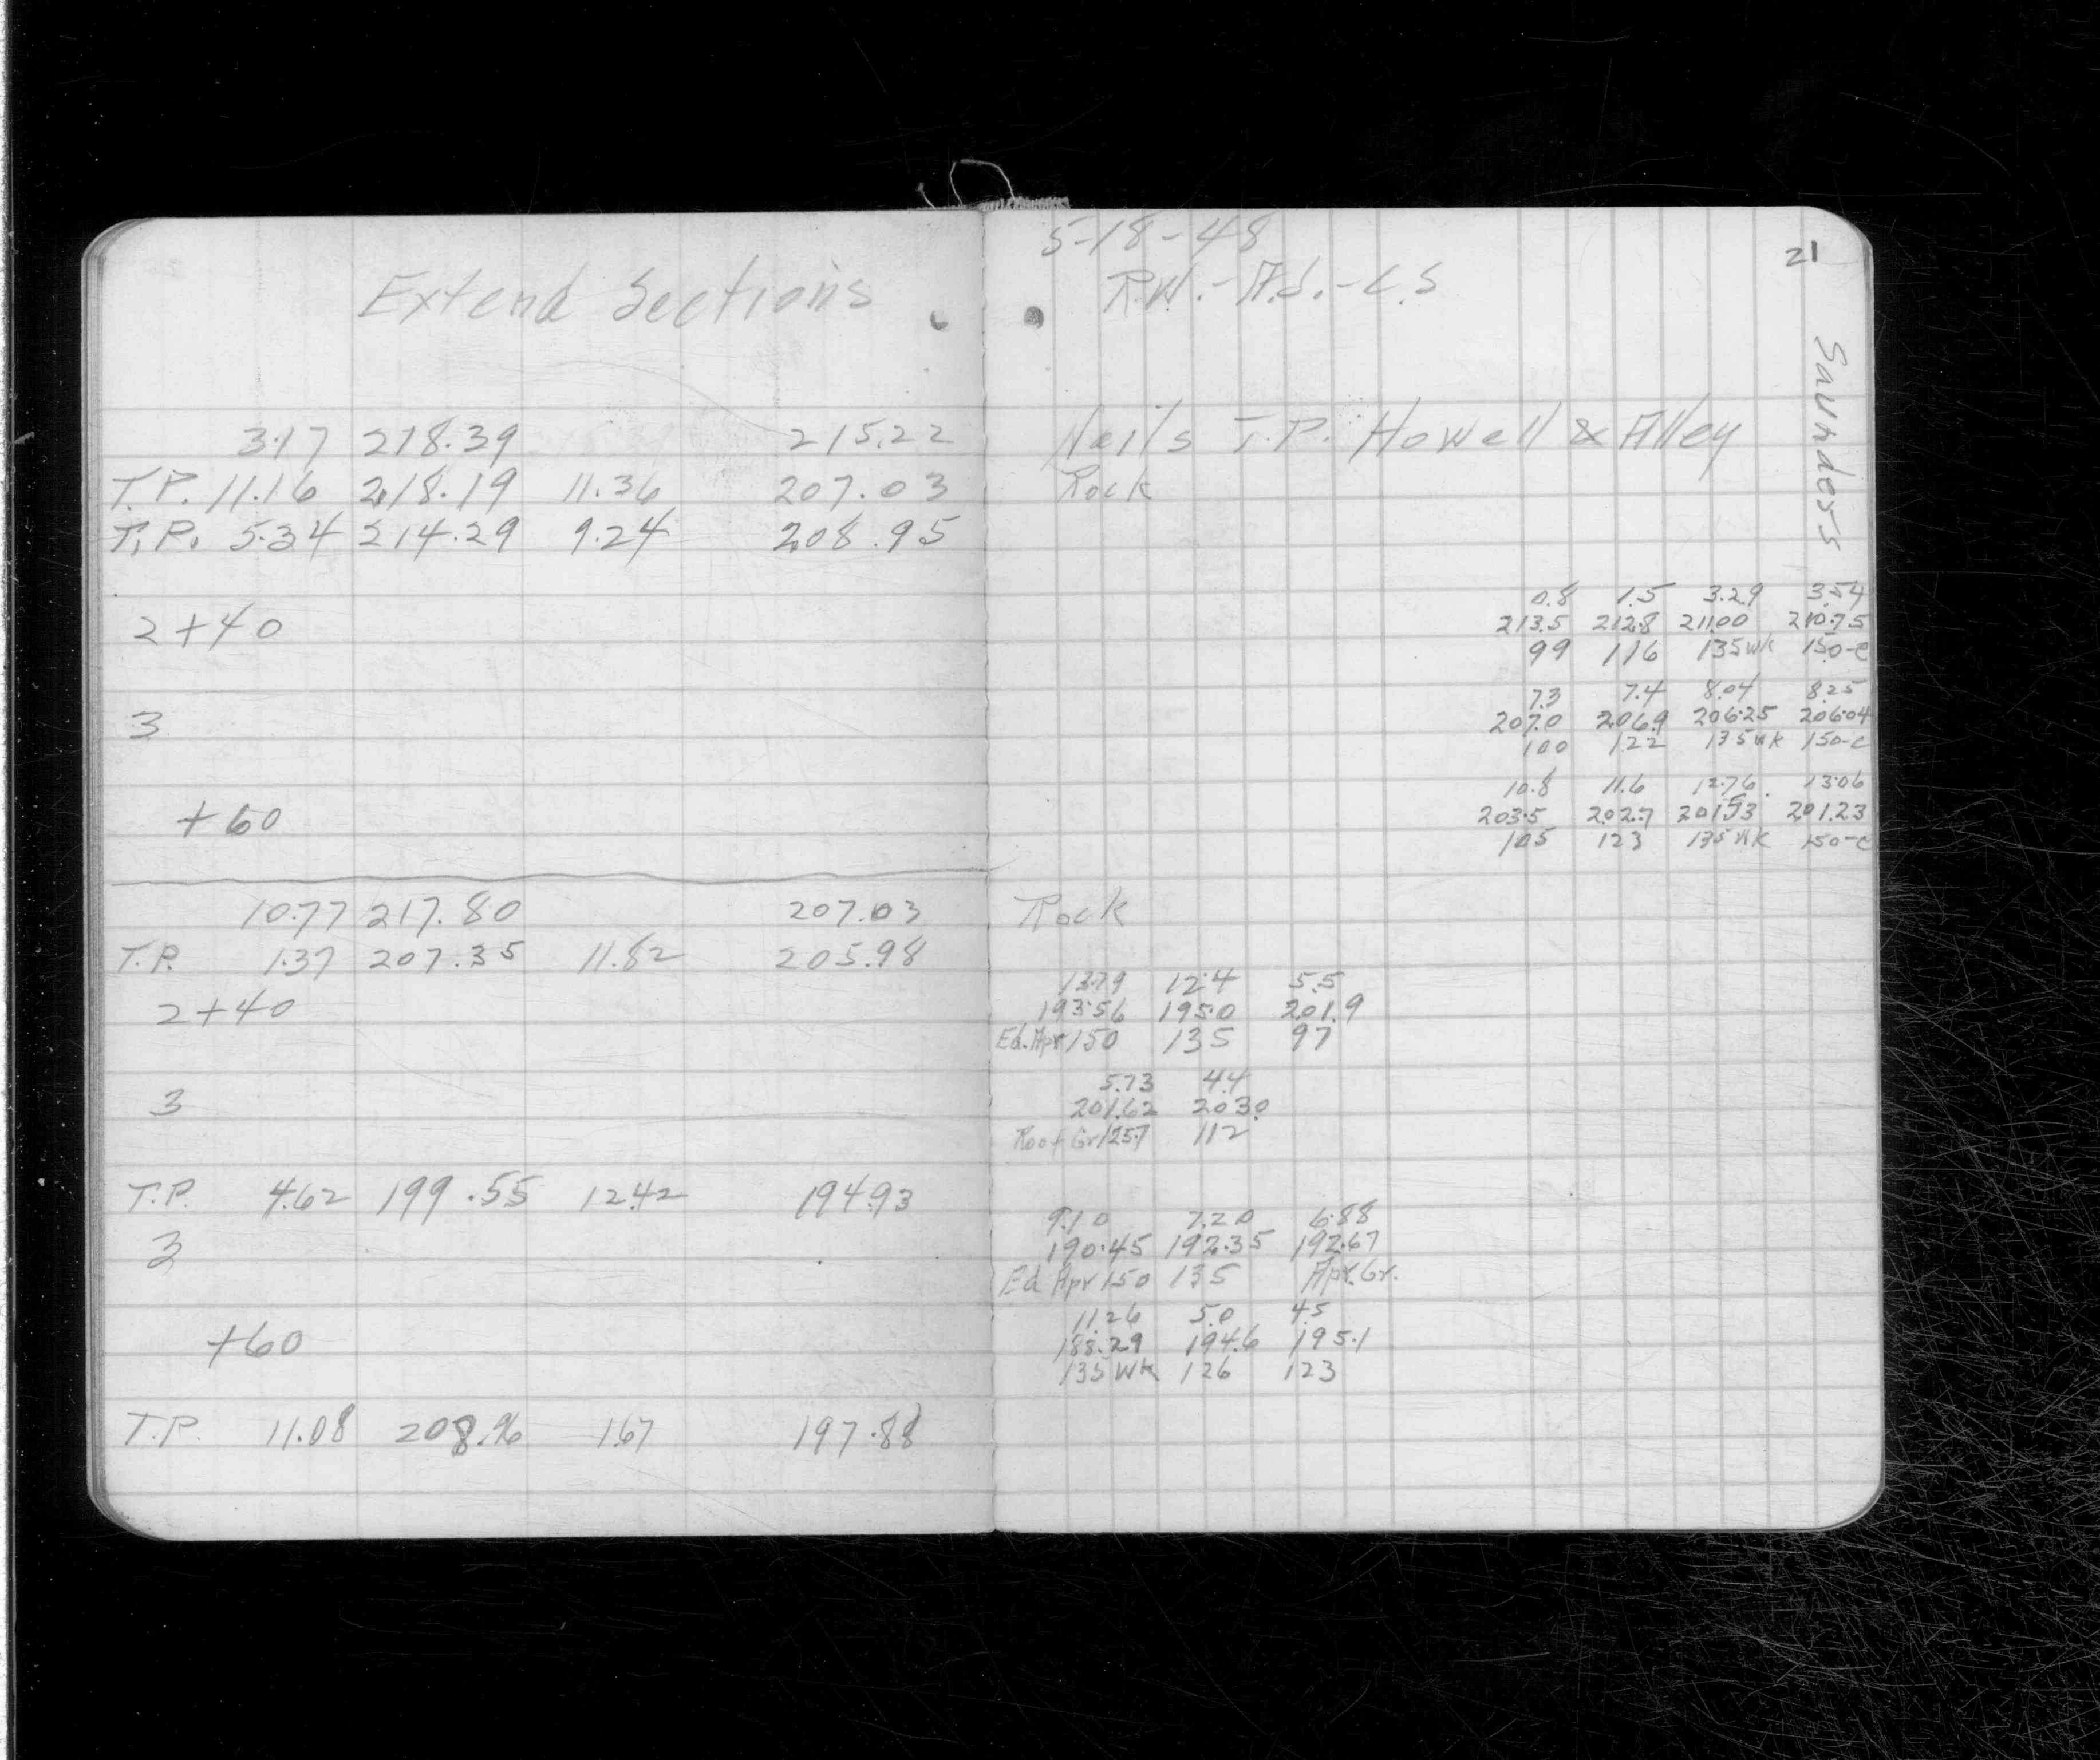 Extend Sections
3.17 218.39 215.22
T.P. 11.16 218.19 11.36 207.03
T.P. 5.34 214.29 9.24 208.95
2+40
3
+60
10.77 217.80 207.03
T.P. 1.37 207.35 11.82 205.98
2+40
3
T.P. 4.62 199.55 12.42 194.93
3
+60
T.P. 11.08 208.96 1.67 197.88
5-18-48
21
R.W.-A.S.-C.S
Saunders
Nails T.P. Howell & Alley
Rock
0.8 1.5 3.29 3.54
213.5 212.8 211.00 210.75
99 116 135wk 150-c
7.3 7.4 8.04 8.25
207.0 206.9 206.25 206.04
100 122 135wk 150-c
10.8 11.6 12.76 13.06
203.5 202.7 201.53 201.23
105 123 135wk 150-c
Rock
13.79 12.4 5.5
193.56 195.0 201.9
Ed.Apr 150 135 97
5.73 4.4
201.62 203.0
Gr 125.7 112
9.10 7.20 6.88
190.45 192.35 192.67
Ed Apr 150 135 Apr.Gr.
11.26 5.0 4.5
188.29 194.6 195.1
135 Wk 126 123